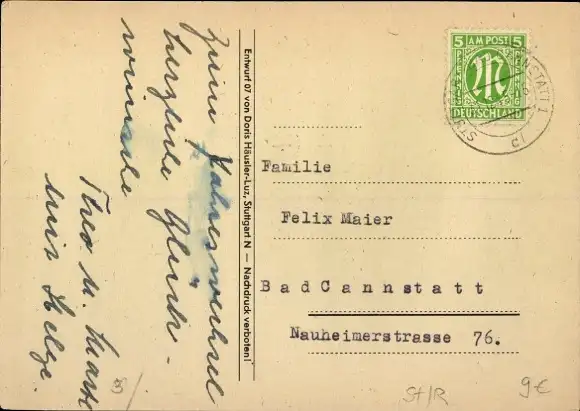 Zum Jahreswechsel
herzliche Glück-
wünsche
Theo u.
Entwurf 07 von Doris Häusler-Luz, Stuttgart N — Nachdruck verboten!
5 AM POST 5
PFENNIG
M
DEUTSCHLAND
Familie
Felix Maier
Bad Cannstatt
Nauheimerstrasse 76.
3/
St/R
9€